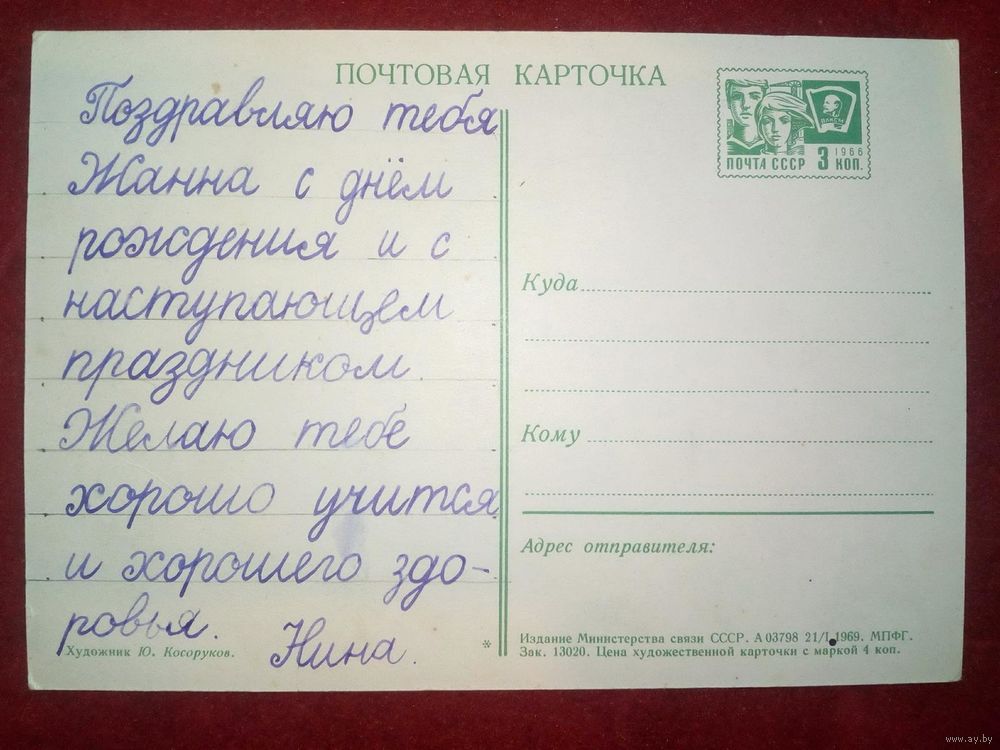 ПОЧТОВАЯ КАРТОЧКА
Поздравляю тебя
Жанна с днём
рождения и с
наступающем
праздником.
Желаю тебе
хорошо учится
и хорошего здо-
ровья.
Нина.
Художник Ю. Косоруков.
ВЛКСМ
1966
ПОЧТА СССР 3 КОП.
Куда
Кому
Адрес отправителя:
* Издание Министерства связи СССР. А 03798 21/I 1969. МПФГ.
Зак. 13020. Цена художественной карточки с маркой 4 коп.
www.ay.by